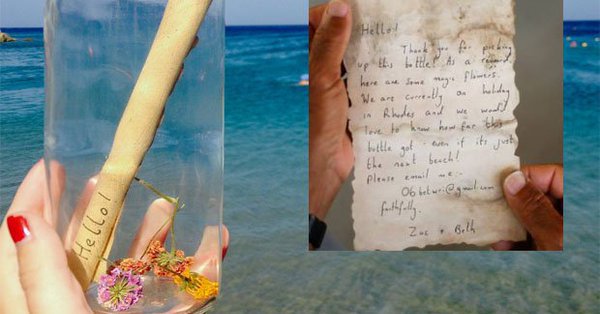 Hello!
Hello!
Thank you for picking
up this bottle! As a reward,
here are some magic flowers.
We are currently on holiday
in Rhodes and we would
love to know how far this
bottle got - even if its just
the next beach!
Please email me :-
@gmail.com
faithfully
Zac + Beth